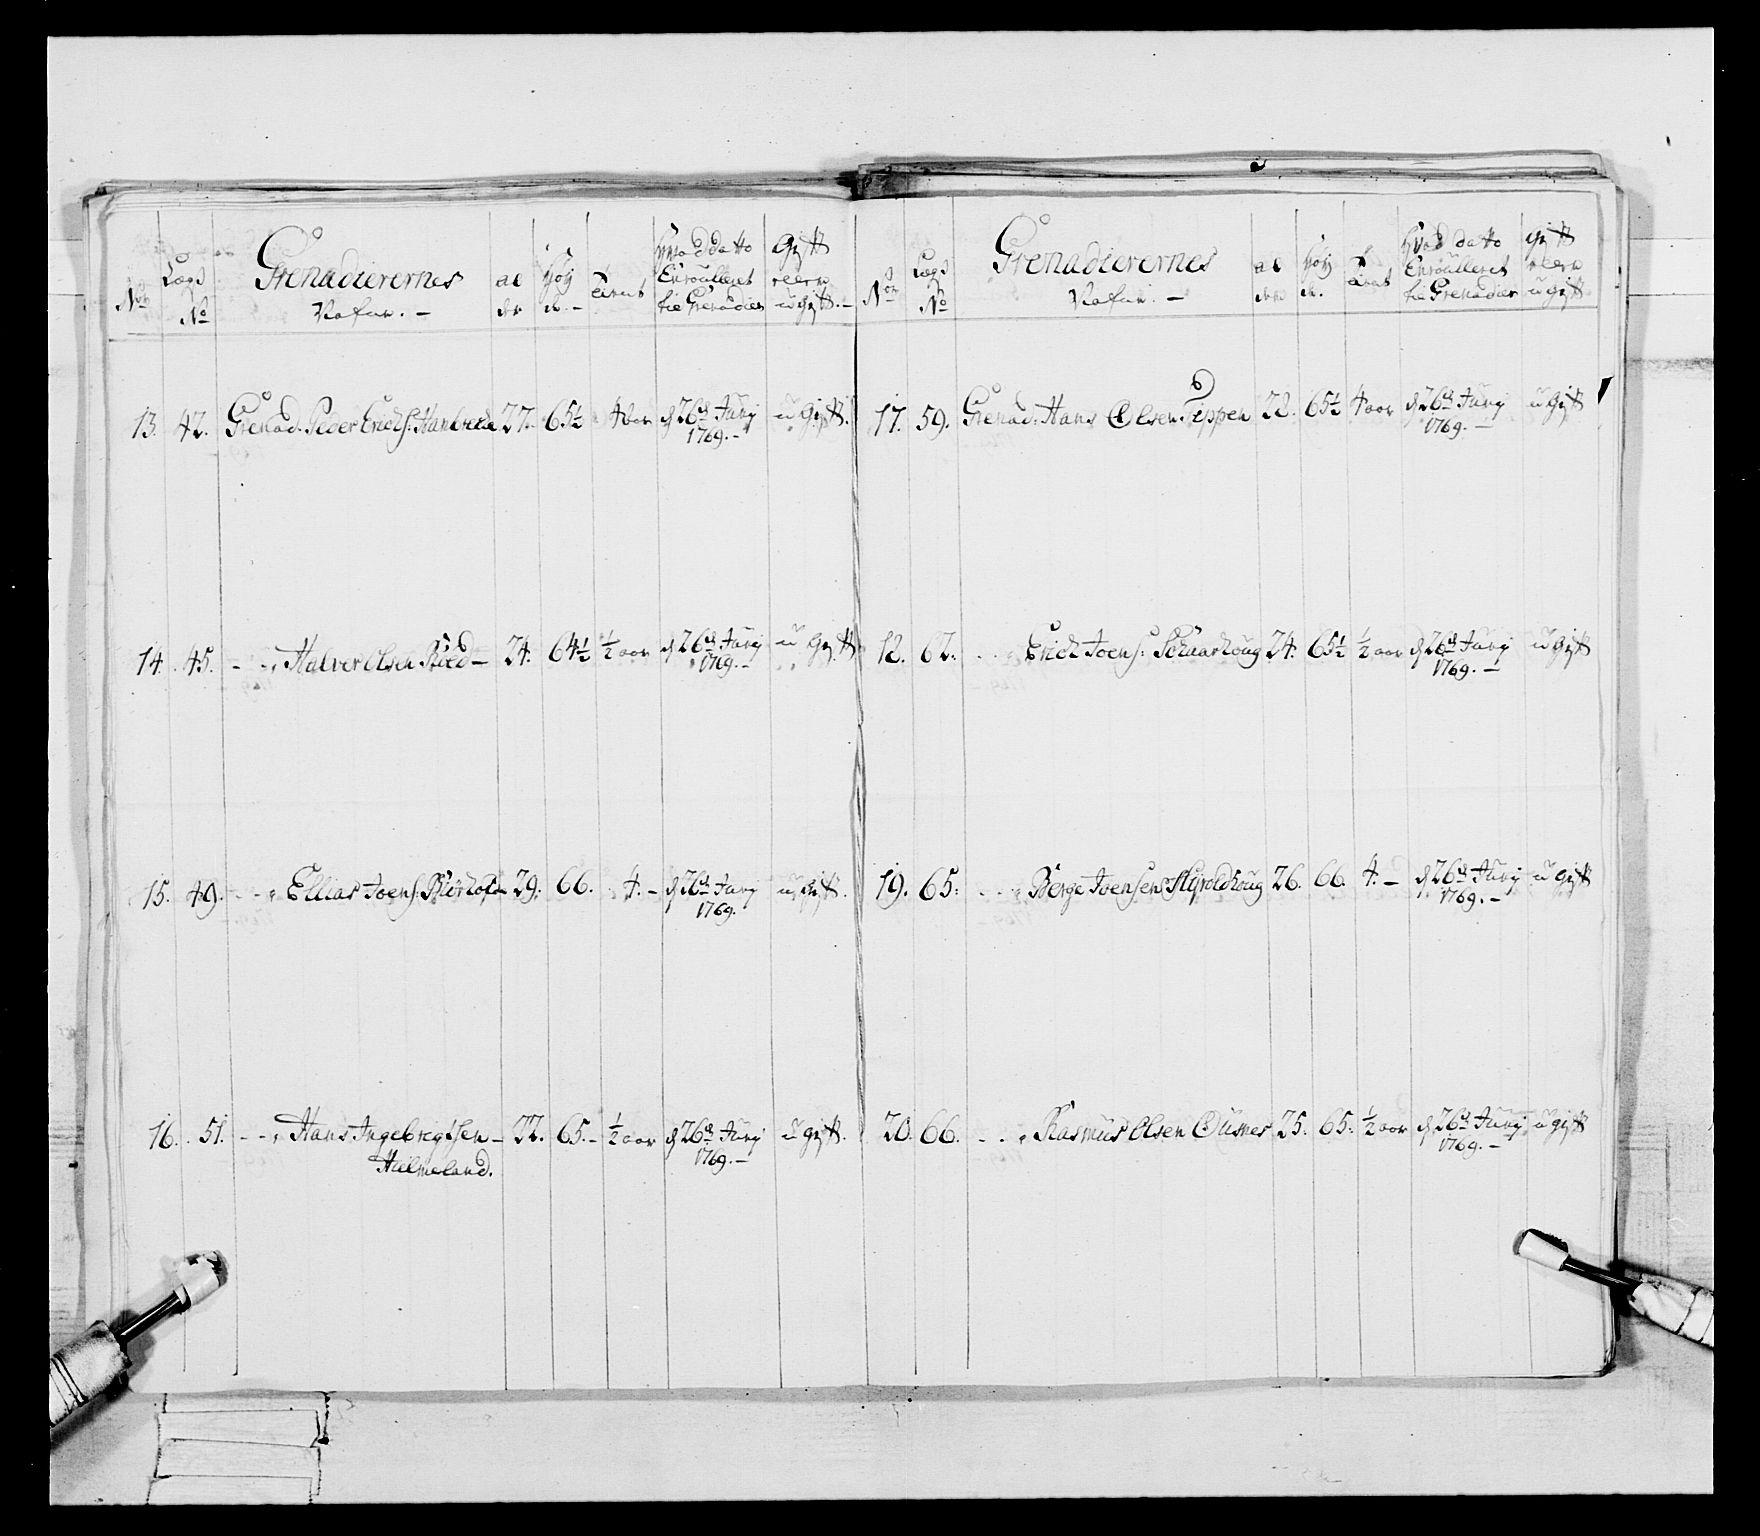 Nor Lægs No Grenadierernes Nafne. — al der høy de. — tient hvad dato Enroulleret til Grenadier Gift eller ugift. —
13. 42. Grenad. Peder Erichs. 27. 65½ 4 aar d 26de Junij 1769. — u Gift.
14. 45. — — Halver Olsen — 24. 64½ ½ aar d 26de Junij 1769. — u gift
15. 49. — — Ellias Joens. 29. 66. 4. — d 26de Junij 1769. u gift.
16. 51. — — Hans Ingebregtsen — 22. 65. — ½ aar d 26de Junij 1769. — u gift.
Hielmeland.
Nor Lægs No Grenadierernes Nafne. — al der høy de. tient hvad dato Enroulleret til Grenadier gift eller ugift
17. 59. Grenad. Hans Olsen Teppen 22. 65½ 4 aar d 26de Junij 1769. — u gift
18. 62. Erich Joens. Schaarhoug 24. 65½ ½ aar d 26de Junij 1769. — u gift
19. 65. Berge Joensen 26. 66. 4. — d 26de Junij 1769. — u gift
20. 66. — Rasmus Olsen 25. 65. ½ aar d 26de Junij 1769. — u gift